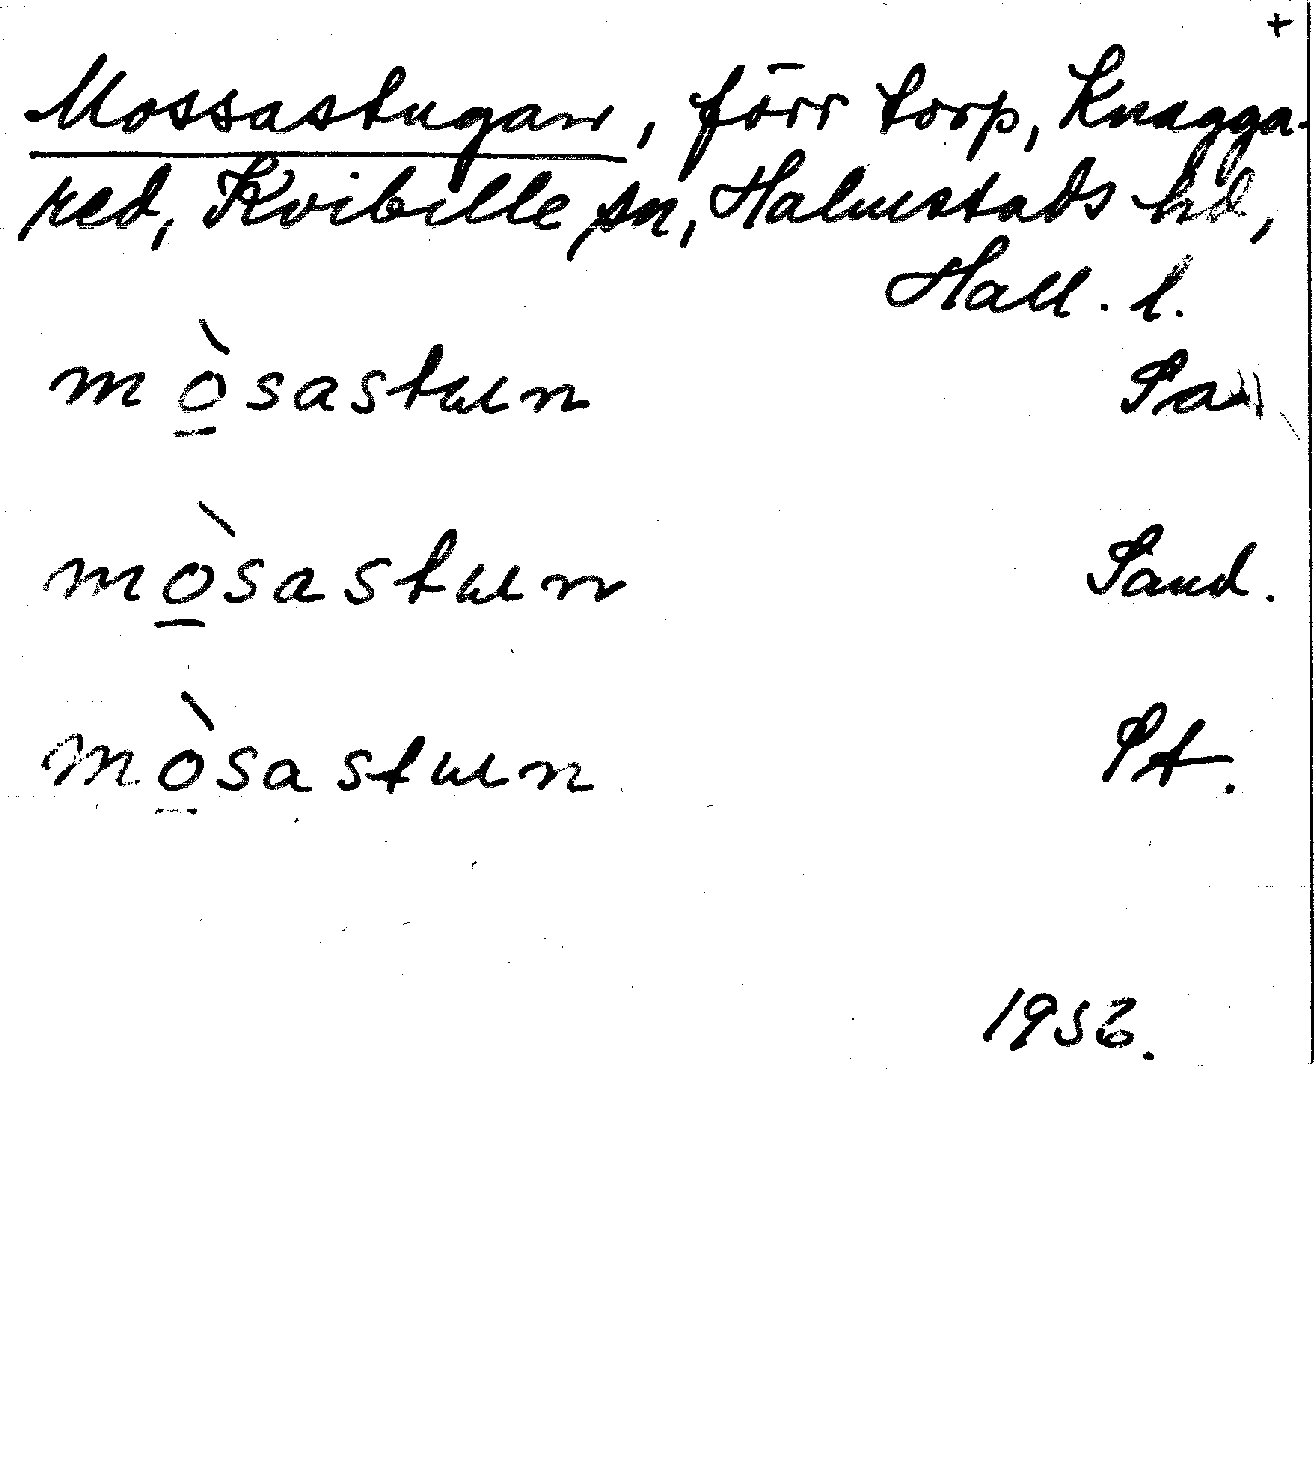 +
Mossastugan, förr torp, Knagga-
red, Kvibille sn, Halmstads hd,
Hall. l.
mò̱sastuun Pa
mò̱sastuun Sand.
mò̱sastuun St.
1956.